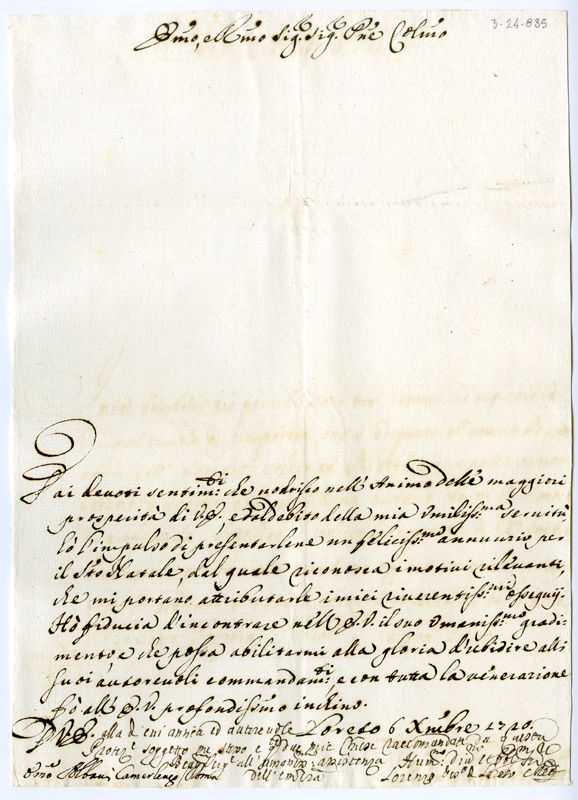 3-24-885
Emo, e Rmo Sig.r Sig.r Pne Colmo
Dai devoti sentim.ti che nodrisco nell' Animo delle maggiori
prosperità di V.E. e dal debito della mia Umiliss.ma servitù
hò l'impulso di presentarlene un feliciss.mo annunzio per
il Sto Natale, dal quale riconosca i motivi rilevanti,
che mi portano attributarle i miei riverentiss.mi ossequij.
Hò fiducia d'incontrare nell' E.V. il suo Umaniss.mo gradi-
mento, e che possa abilitarmi alla gloria d'ubidire alli
suoi autorevoli commandam.ti e con tutta la venerazione
fò all' E.V. profondissimo inchino.
D.V.E. alla di cui ed autorevole Loreto 6 Xmbre 1720.
soggetto mie Chiese raccomandati
all'
Emo Albani Camerlengo Roma dell' Lorenzo di Loreto